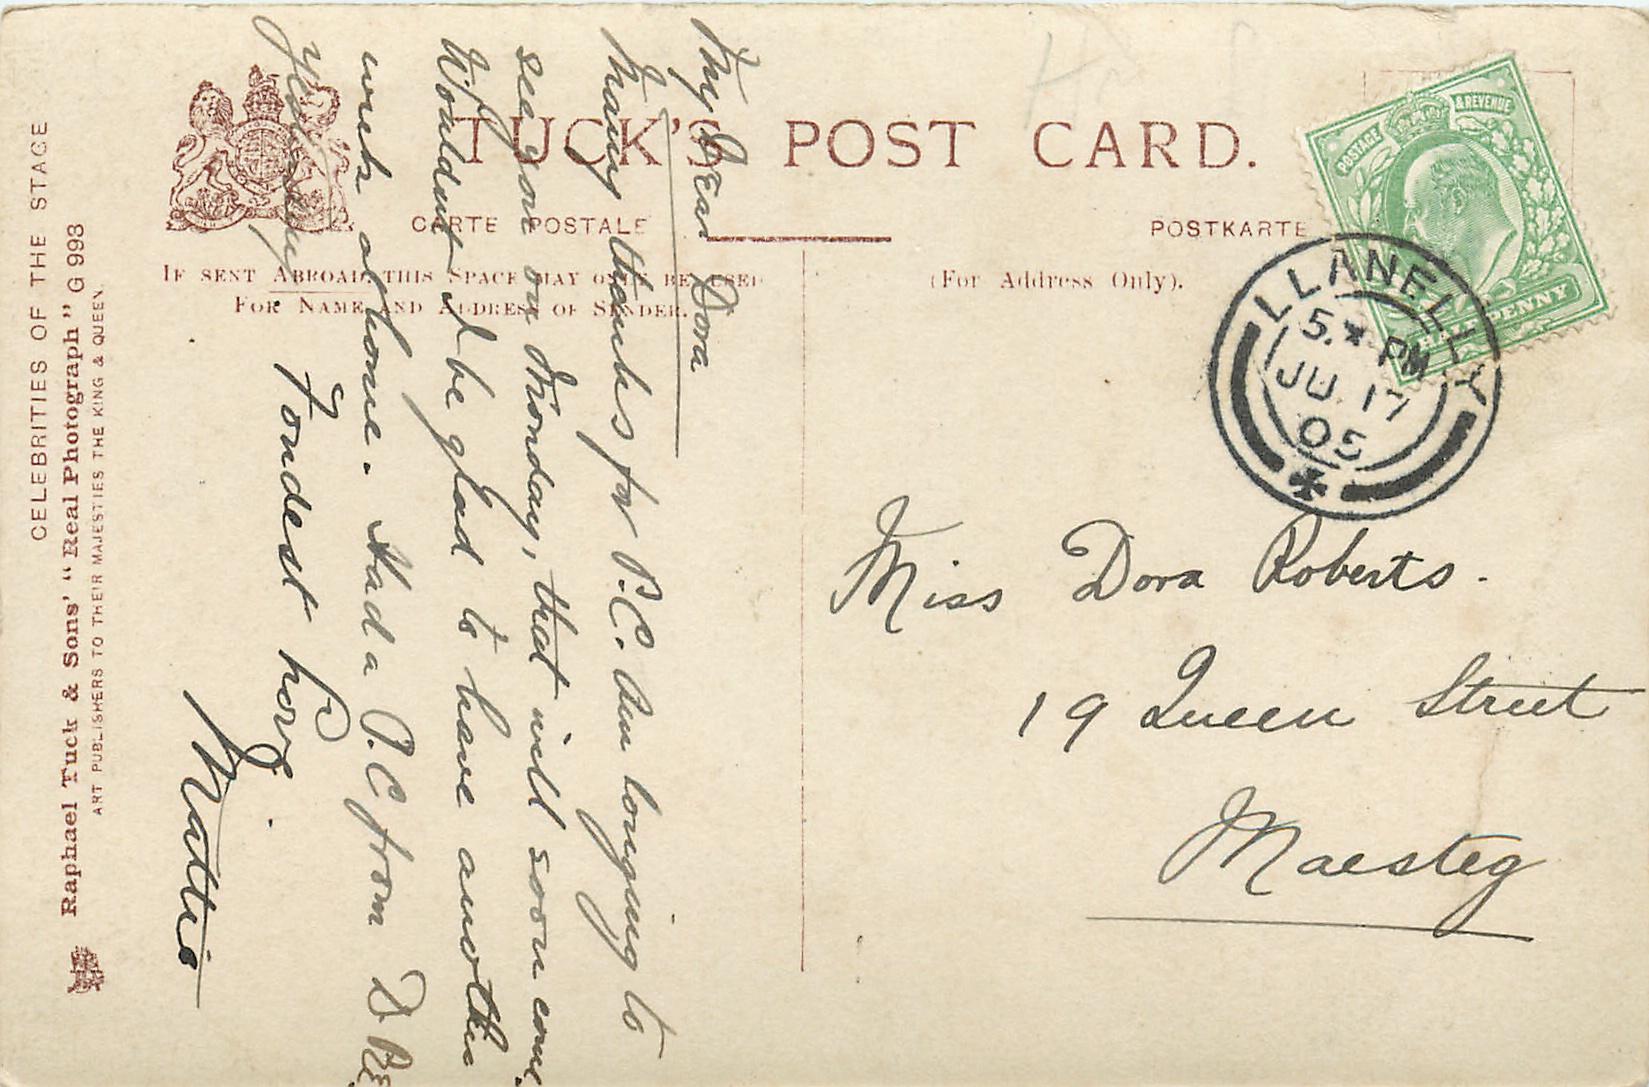 TUCK'S POST CARD.
CARTE POSTALE
POSTKARTE
IF SENT ABROAD THIS SPACE MAY ONLY BE USED
FOR NAME AND ADDRESS OF SENDER.
(For Address Only).
POSTAGE & REVENUE
HALFPENNY
LLANELLY
5.* PM
JU 17
05
Miss Dora Roberts.
19 Queen Street
Maesteg
My Dear Dora
Many thanks for P.C. Am longing to
see you on Monday, that will soon come.
Wouldnt I be glad to have another
week at home. Had a P.C from D
yesterday.
Fondest love
Mattie
CELEBRITIES OF THE STAGE
Raphael Tuck & Sons' "Real Photograph" G 993
ART PUBLISHERS TO THEIR MAJESTIES THE KING & QUEEN.